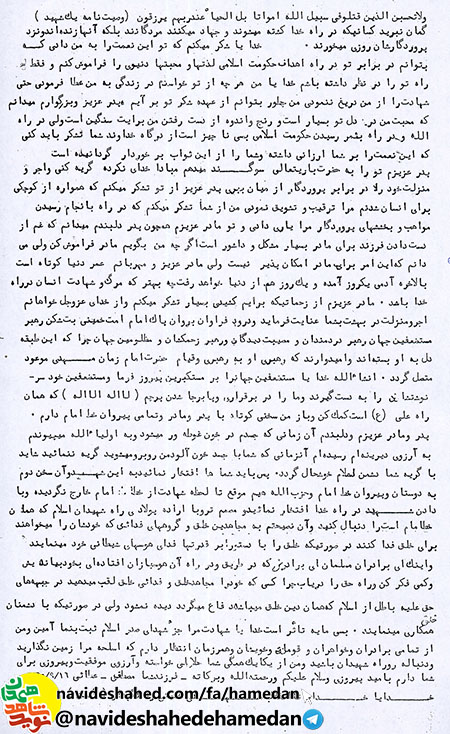 ولاتحسبن الذین قتلوفی سبیل الله امواتا بل الحیاء عندربهم یرزقون (وصیت نامه یک شهید)
گمان نبرید کسانیکه در راه خدا کشته میشوند و جهاد میکنند مردگانند بلکه آنها زنده اند ونزد
پروردگارشان روزی میخورند • خدا یا شکر میکنم که تو این نعمت را به من دادی که
بتوانم در برابر تو در راه اهداف حکومت اسلامی لذتها و محبتها دنیوی را فراموش کنم و فقط
راه تو را در نظر داشته باشم خدا یا من هر چه از تو خواستم در زندگی به من عطا فرمودی حتی
شهادت را از من دریغ ننمودی من چطور بتوانم از عهده شکر تو بر آیم پدر عزیز وبزرگوارم میدانم
که محبت من در دل تو بسیار است و رنج واندوه از دست رفتن من برایت سنگین است ولی در راه
الله ودر راه بثمر رسیدن حکومت اسلامی بس نا چیز است از درگاه خداوند شما تشکر باید کنی
که این نعمت را بر شما ارزانی داشته وشما را از این ثواب بر خوردار گردانیده است
پدر عزیزم تو را به حضرت باریتعالی سوگند میدهم مبادا خدای نکرده گریه کنی واجر و
منزلت خود را در برابر پروردگار از میان ببری پدر عزیز از تو تشکر میکنم که همواره از کوچکی
برای انسان شدنم مرا ترغیب و تشویق نمودی من از شما تشکر میکنم که در راه بانجام رسیدن
مواهب و بخششهای پروردگار مرا یاری دادی و تو مادر عزیزم همچون پدر دلبندم میدانم که غم از
دست دادن فرزند برای مادر بسیار مشکل و دشوار است اگر چه من بگویم مادر فراموش کن ولی می
دانم که این امر برای مادر امکان پذیر نیست ولی مادر عزیز و مهربانم عمر دنیا کوتاه است
بالاخره آدمی یکروز آمده و یک روز هم از دنیا خواهد رفت چه بهتر که مرگ و شهادت انسان در راه
خدا باشد • مادر عزیزم از زحماتیکه برایم کشیدی بسیار تشکر میکنم واز خدای عزوجل خواهانم
اجر ومنزلت در بهشت بشما عنایت فرماید ودرود فراوان بروان پاک امام امت خمینی بت شکن رهبر
مستضعفین جهان رهبر دردمندان و مصیبت دیدگان ورهبر زحمتکشان و مظلومین جهان چرا که این طبقه
دل به او بسته اند وامیدوارند که رهبری او به رهبری وقیام حضرت امام زمان مهدی موعود
متصل گردد • انشاءالله خدا یا مستضعفین جهانرا بر مستکبرین پیروز فرما ومستضعفین خود سر-
نوشتشان را به دست گیرند وما را در برقراری وپابرجا شدن پرچم ( لااله الاالله ) که همان
راه علی (ع) است کمک کن وباز من سخنی کوتاه با پدر ومادر وتمامی پیروان خط امام دارم •
پدر ومادر عزیزم ودلبندم آن زمانی که جسدم در خون غوطه ور میشود وبه اولیاءالله میپیوندم
به آرزوی دیرینه ام رسیده ام آنزمانی که شما با جسد خون آلود من روبرو میشوید گریه ننمائید شاید
با گریه شما دشمن اسلام خوشحال گردد • پس باید شما ها افتخار نمائید به این شهید وآن سخن دوم
به دوستان وپیروان خط امام وحزب الله هیچ موقع تا لحظه شهادت از خط امام خارج نگردید وبا
دادن شهید در راه خدا افتخار نمائید ومصمم تر وبا اراده پولادی راه شهیدان اسلام که همان
خط امام است را دنبال کنید وآن نصیحتم به مجاهدین خلق و گروههای فدائی که خودشان را میخواهند
برای خلق فدا کنند در صورتیکه خلق را با دستبرابر قدرتها فدای هوسهای شیطانی خود مینمایند
واینک ای برادران مسلمان ای برادری که در طریق ودر راه آن هوسبازان افتاده ای بخود بیا
وکمی فکر کن وراه حق را دریاب چرا کسی که خود را مجاهد خلق و فدائی خلق لقب میدهید در جبهه های
حق علیه باطل از اسلام که همان دین خلق میباشد دفاع میکردد دیده نمیشود ولی در صورتیکه با دشمنان خلق
همکاری مینمایند • بسی مایه تأثر است خدا یا شهادت مرا جزء شهدای صدر اسلام ثبت بنما آمین ومن
از تمامی برادران وخواهران و قومان وخویشان وهمرزمان انتظار دارم که اسلحه مرا زمین نگذارید
ودنباله رو راه شهیدان باشید ومن از یکایک همگی شما حلالی خواسته وآرزوی موفقیت وپیروزی برای
شما دارم بامید پیروزی وسلام علیکم ورحمت الله وبرکاته
خدایا خدایا
navideshahed.com/fa/hamedan
@navideshahedehamedan
نوید شاهد همدان